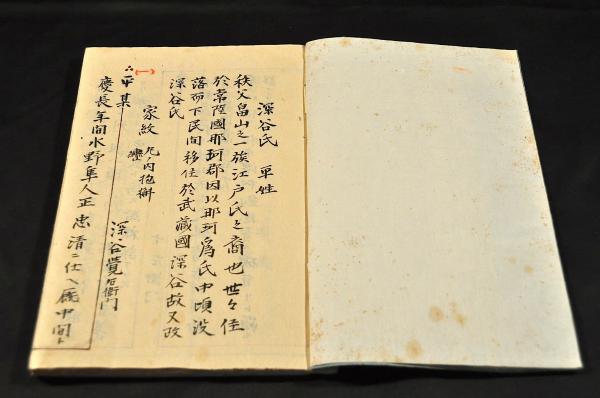 深谷氏 平姓
秩父畠山之一族江戸氏之裔也世々住
於常陸國那珂郡因以那珂爲氏中頃没
落而下民間移住於武藏國深谷故又改
深谷氏
家紋 丸ノ内抱
(一)
深谷覺右衛門
某
慶長年間水野隼人正忠清ニ仕へ廐中間ト